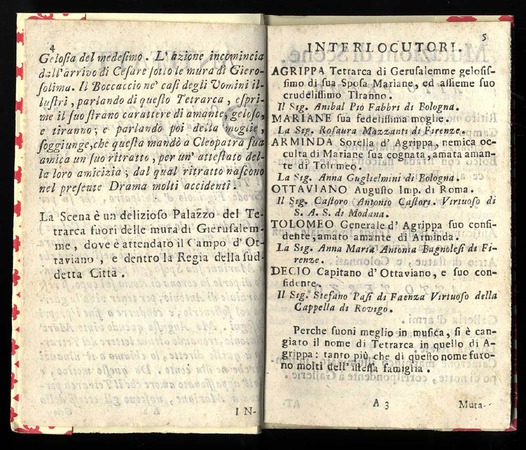 4
Gelosia del medesimo. L'azione incomincia
dall'arrivo di Cesare sotto le mura di Giero-
solima. Il Boccaccio ne' casi degli Uomini il-
lustri, parlando di questo Tetrarca, espri-
me il suo strano carattere di amante, geloso,
e tiranno; e parlando poi della moglie,
soggiunge, che questa mandò a Cleopatra sua
amica un suo ritratto, per un' attestato del-
la loro amicizia; dal qual ritratto nascono
nel presente Drama molti accidenti.
La Scena è un delizioso Palazzo del Te-
trarca fuori delle mura di Gierusalem-
me, dove è attendato il Campo d'Ot-
taviano, e dentro la Regia della sud-
detta Città.
IN-
5
INTERLOCUTORI.
AGRIPPA Tetrarca di Gerusalemme gelosis-
simo di sua Sposa Mariane, ed assieme suo
crudelissimo Tiranno.
Il Sig. Anibal Pio Fabbri di Bologna.
MARIANE sua fedelissima moglie.
La Sig. Rosaura Mazzanti di Firenze.
ARMINDA Sorella d'Agrippa, nemica oc-
culta di Mariane sua cognata, amata aman-
te di Tolomeo.
La Sig. Anna Guglielmini di Bologna.
OTTAVIANO Augusto Imp. di Roma.
Il Sig. Castoro Antonio Castori. Virtuoso di
S. A. S. di Modana.
TOLOMEO Generale d'Agrippa suo confi-
dente, amato amante di Arminda.
La Sig. Anna Maria Antonia Bagnolesi di Fi-
renze.
DECIO Capitano d'Ottaviano, e suo con-
fidente.
Il Sig. Stefano Pasi di Faenza Virtuoso della
Cappella di Rovigo.
Perche suoni meglio in musica, si è can-
giato il nome di Tetrarca in quello di A-
grippa: tanto più, che di questo nome furo-
no molti dell'istessa famiglia.
A 3
Muta-